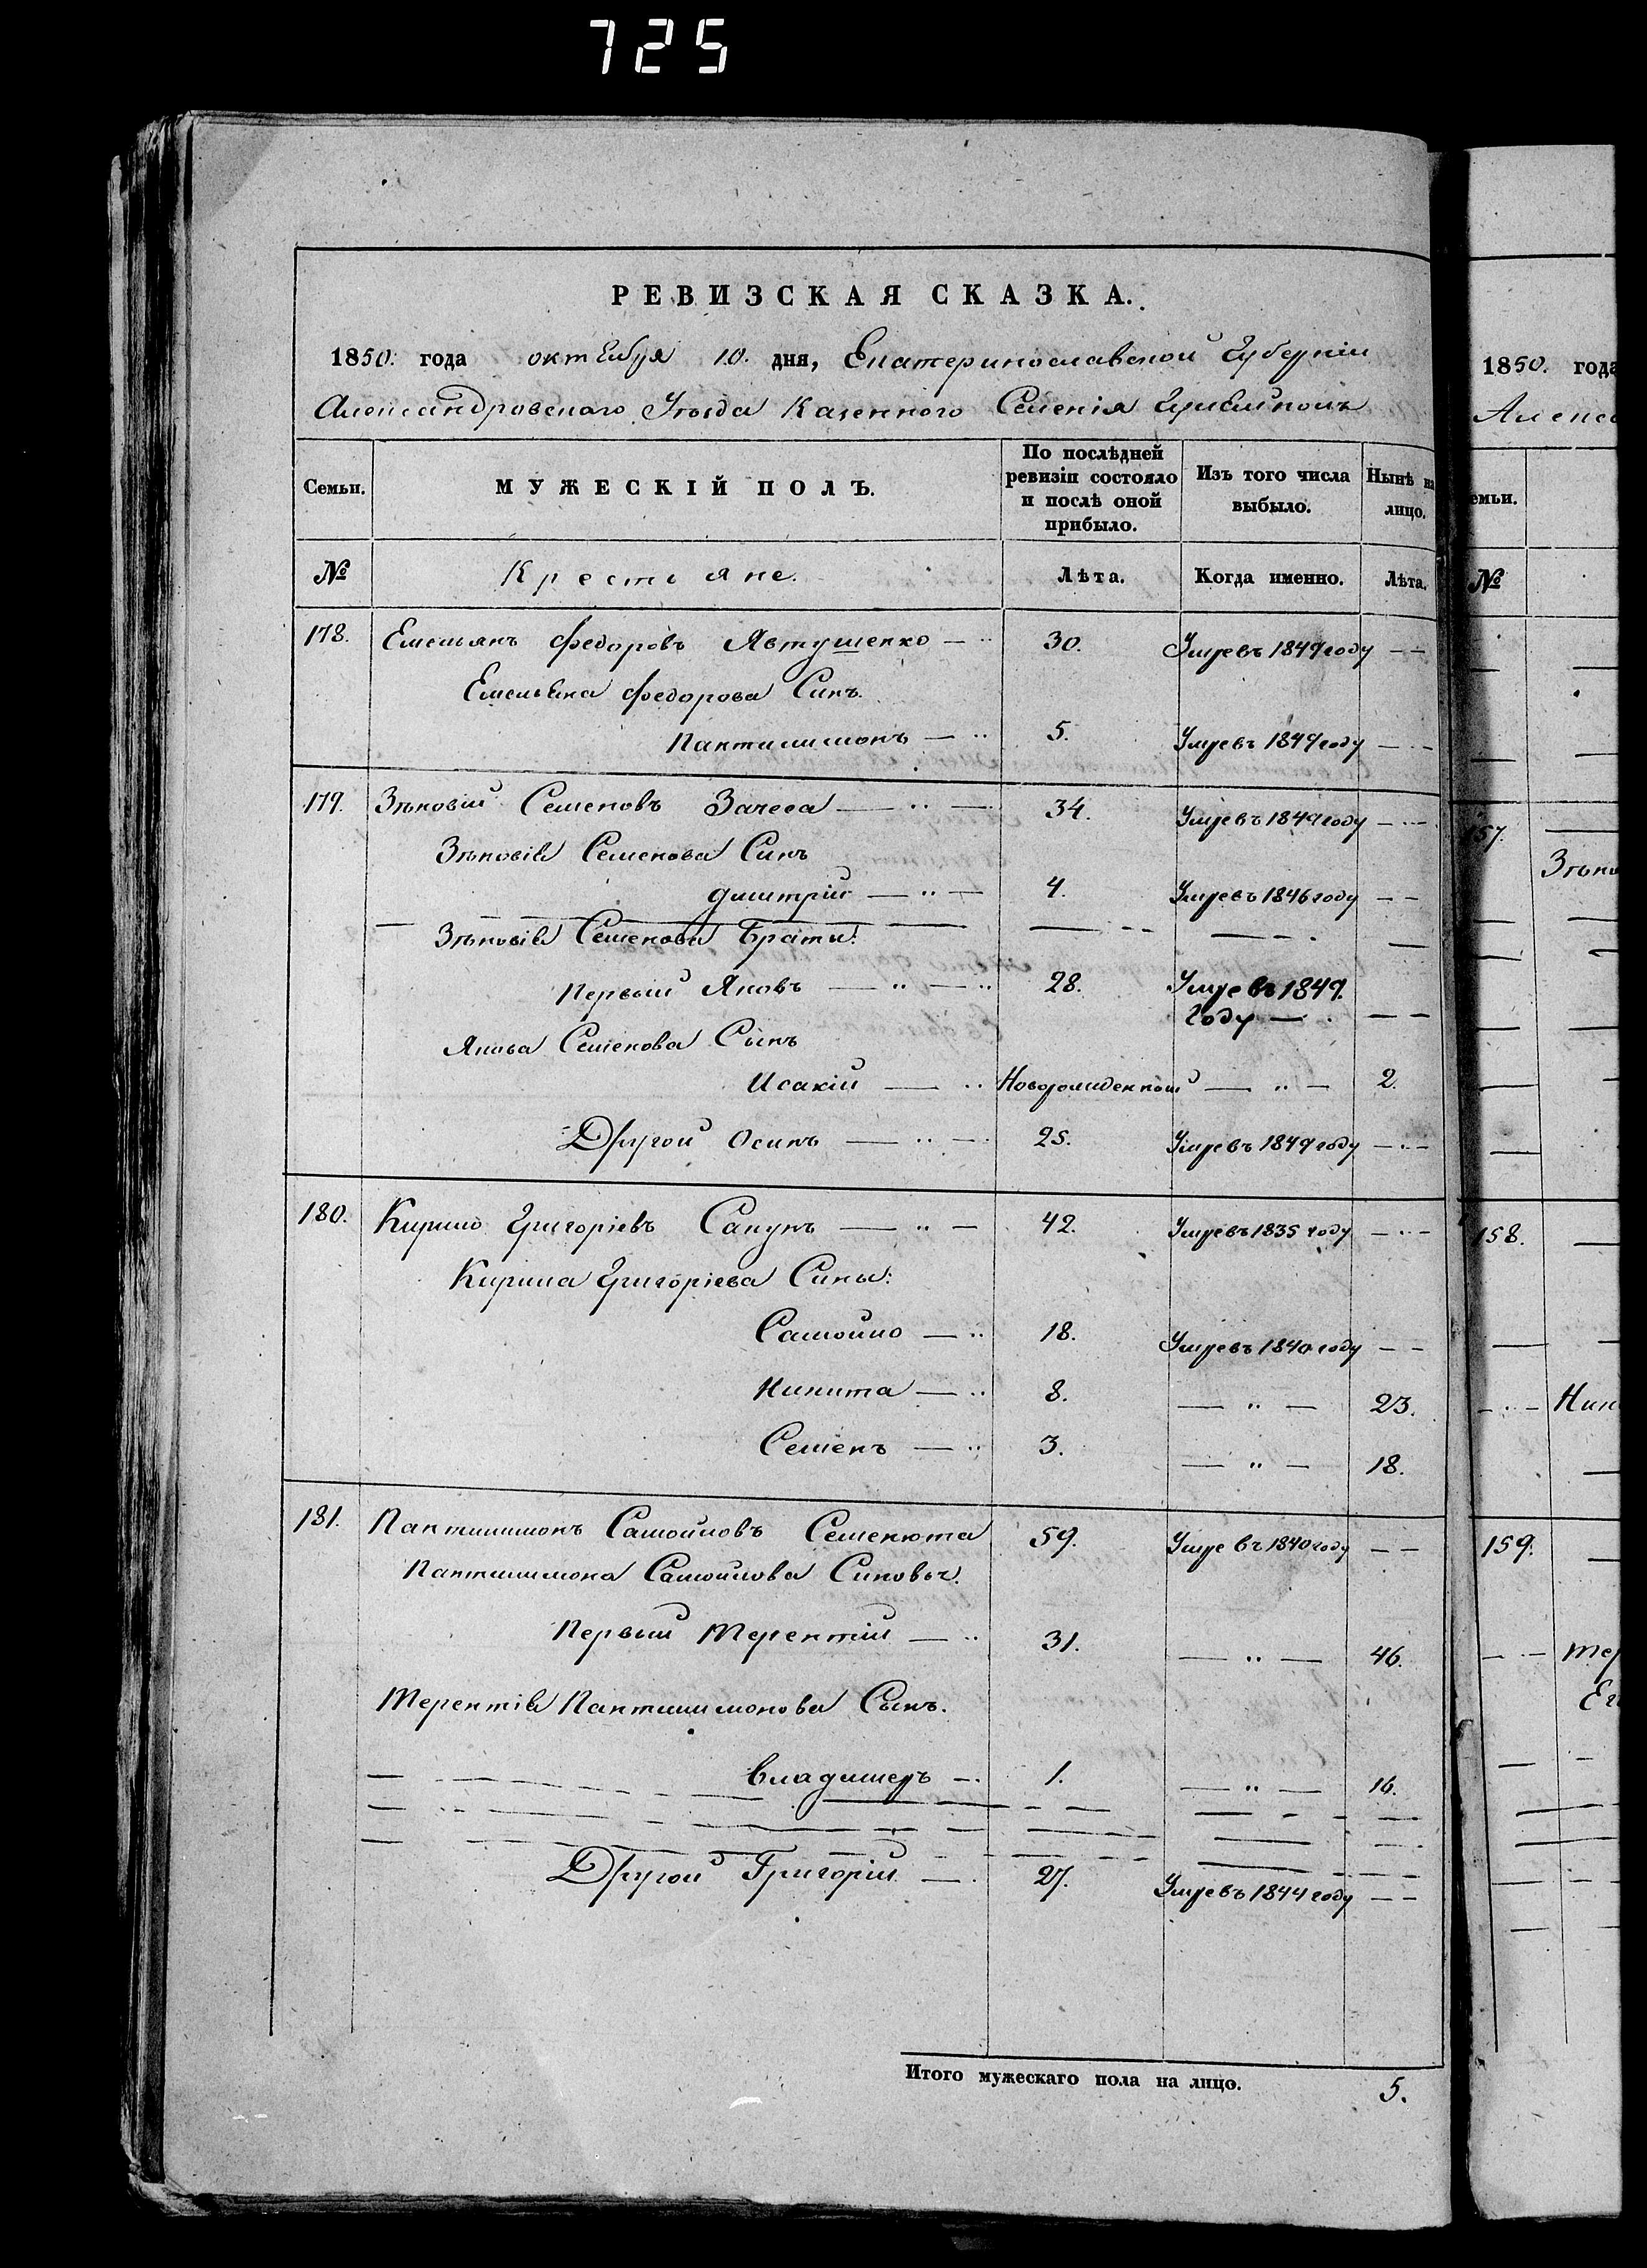 725
РЕВИЗСКАЯ СКАЗКА.
1850. года октября 10. дня, Екатеринославской Губерніи
Александровскаго Уѣзда Казенного Селенія
Семьи. МУЖЕСКІЙ ПОЛЪ. По послѣдней ревизіи состояло и послѣ оной прибыло. Изъ того числа выбыло. Нынѣ на лицо.
№ Крестьяне. Лѣта. Когда именно. Лѣта.
178. Емельянъ Федоровъ Явтушенко — 30. Умре въ 1849 году — —
Емельяна Федорова Синъ.
Пантилимонъ — 5. Умре въ 1849 году — —
179. Зѣновій Семеновъ Зачеса — 34. Умре въ 1849 году — —
Зѣновія Семенова Синъ
Дмитрій — 4. Умре въ 1846 году — —
Зѣновія Семенова Браты:
Первый Яковъ — 28. Умре въ 1849.
году —
Якова Семенова Сынъ
Исакій — Новорожденный — 2.
Другой Осипъ — 25. Умре въ 1849 году — —
180. Кирило Григоріевъ Сапунъ — 42. Умре въ 1835 году — —
Кирила Григоріева Сины:
Самойло — 18. Умре въ 1840 году — —
Никита — 8. — 23.
Семенъ — 3. — 18.
181. Пантилимонъ Самойловъ Семенюта 59. Умре въ 1840 году — —
Пантилимона Самойлова Синовья.
Первый Терентій — 31. — 46.
Терентія Пантилимонова Сынъ.
Владимеръ — 1. — 16.
Другой Григорій — 27. Умре въ 1844 году — —
Итого мужескаго пола на лицо. 5.
1850. года
Алекса
емьи.
№
157.
Зѣно
158.
Ник
159.
Тер
Ег